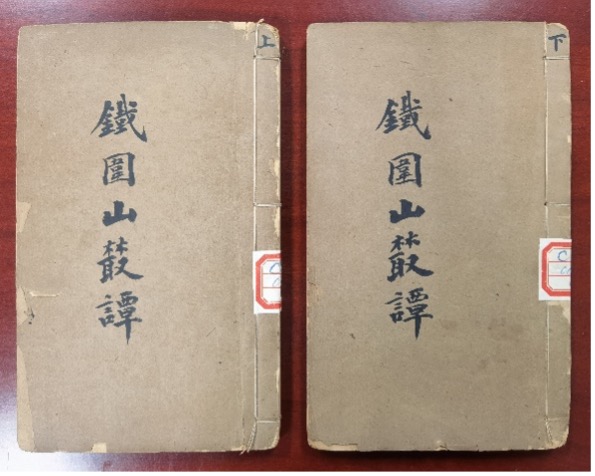 上
鐵圍山叢譚
下
鐵圍山叢譚